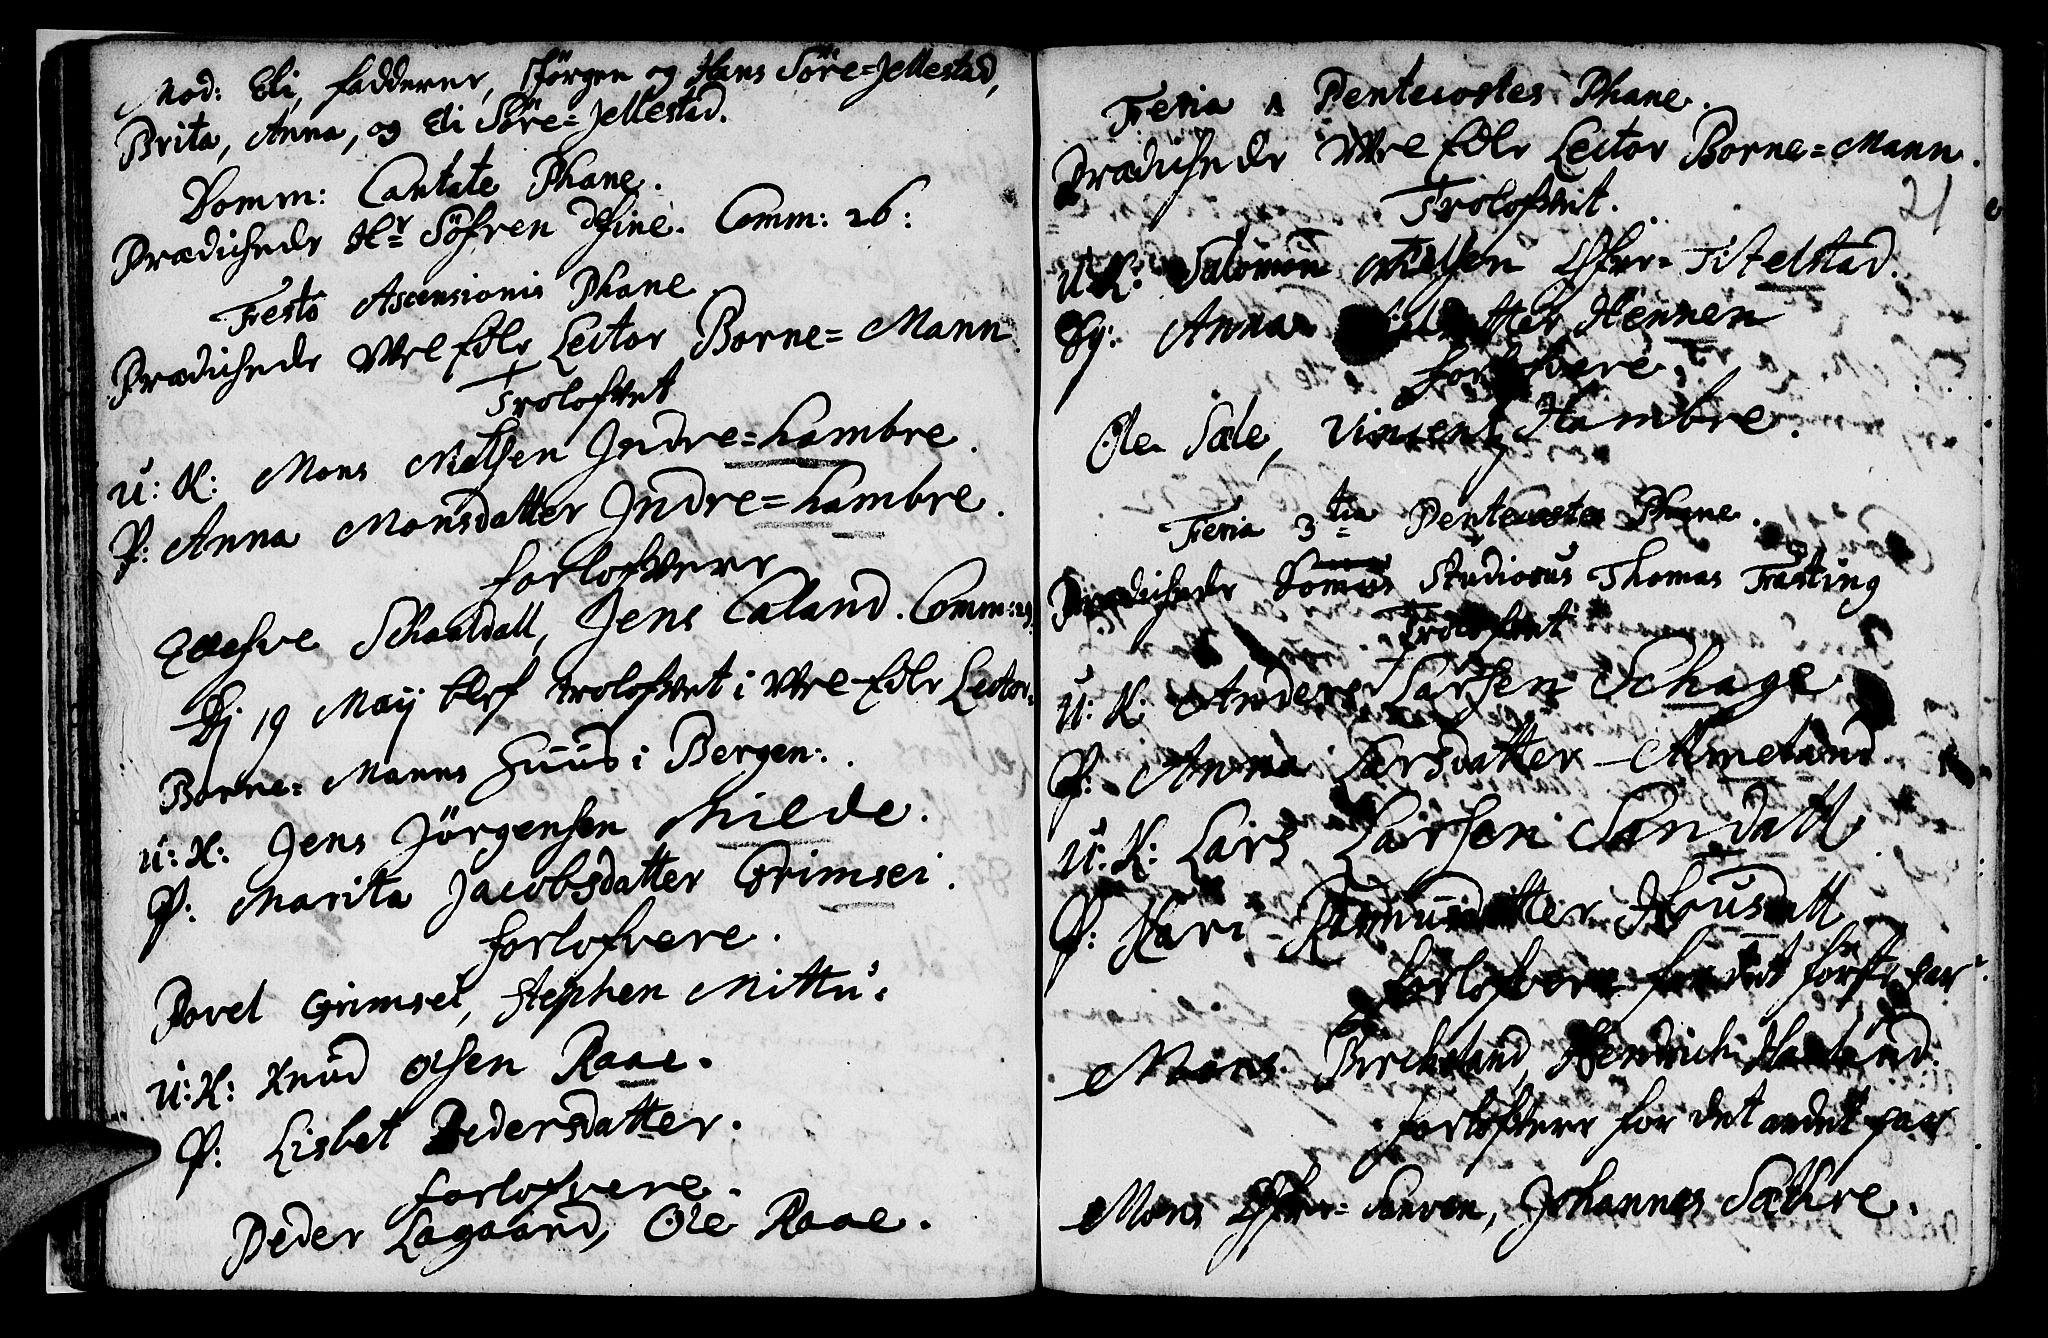 Mod: Eli, fadderne, Jørgen og Hans Søre=Jellestad,
Brita, Anna, og Eli Søre=Jellestad.
Domm: Cantate Phane.
Prædichede Hr Søfren Comm: 26:
Festo Ascensionis Phane.
Prædichede Lector Borne=Mann.
Trolofvet
U: K: Mons Nielsen Indre=hambre.
P: Anna Monsdatter Indre=hambre.
forlofvere
Schaaldall, Jens Caland. Comm: 29.
Dj 19 Maij blef trolofvet i Lector
Borne=Manns Huus i Bergen:
U: K: Jens Jørgensen Milde.
P: Marita Jacobsdatter Grimsei.
forlofvere.
Povel Grimsei, Stephen Mittu:
U: K: Knud Olsen Raae.
P: Lisbet Pedersdatter.
forlofvere.
Peder Lagaard, Ole Raae.
Feria 1 Pentecostes Phane.
Prædichede Lector Borne=Mann.
21
Trolofvet.
U: K: Salomon Nielsen Tistelstad.
Anna Hennen
forlofvere.
Ole Sæle, Vincent Hambre.
Feria 3tia Pentecostes Phane.
Prædichede Studiosus Thomas Fasting
Trolofvet
U: K: Anders Larsen Schage.
P: Anna Larsdatter Aimeland.
U: K: Lars Larsen Sandall.
P: Kari Rasmusdatter Housdall
forlofvere for det første par
Mons Birkeland, Hendrich Hauland.
forlofvere for det andet par
Mons Johannes Sæthre.